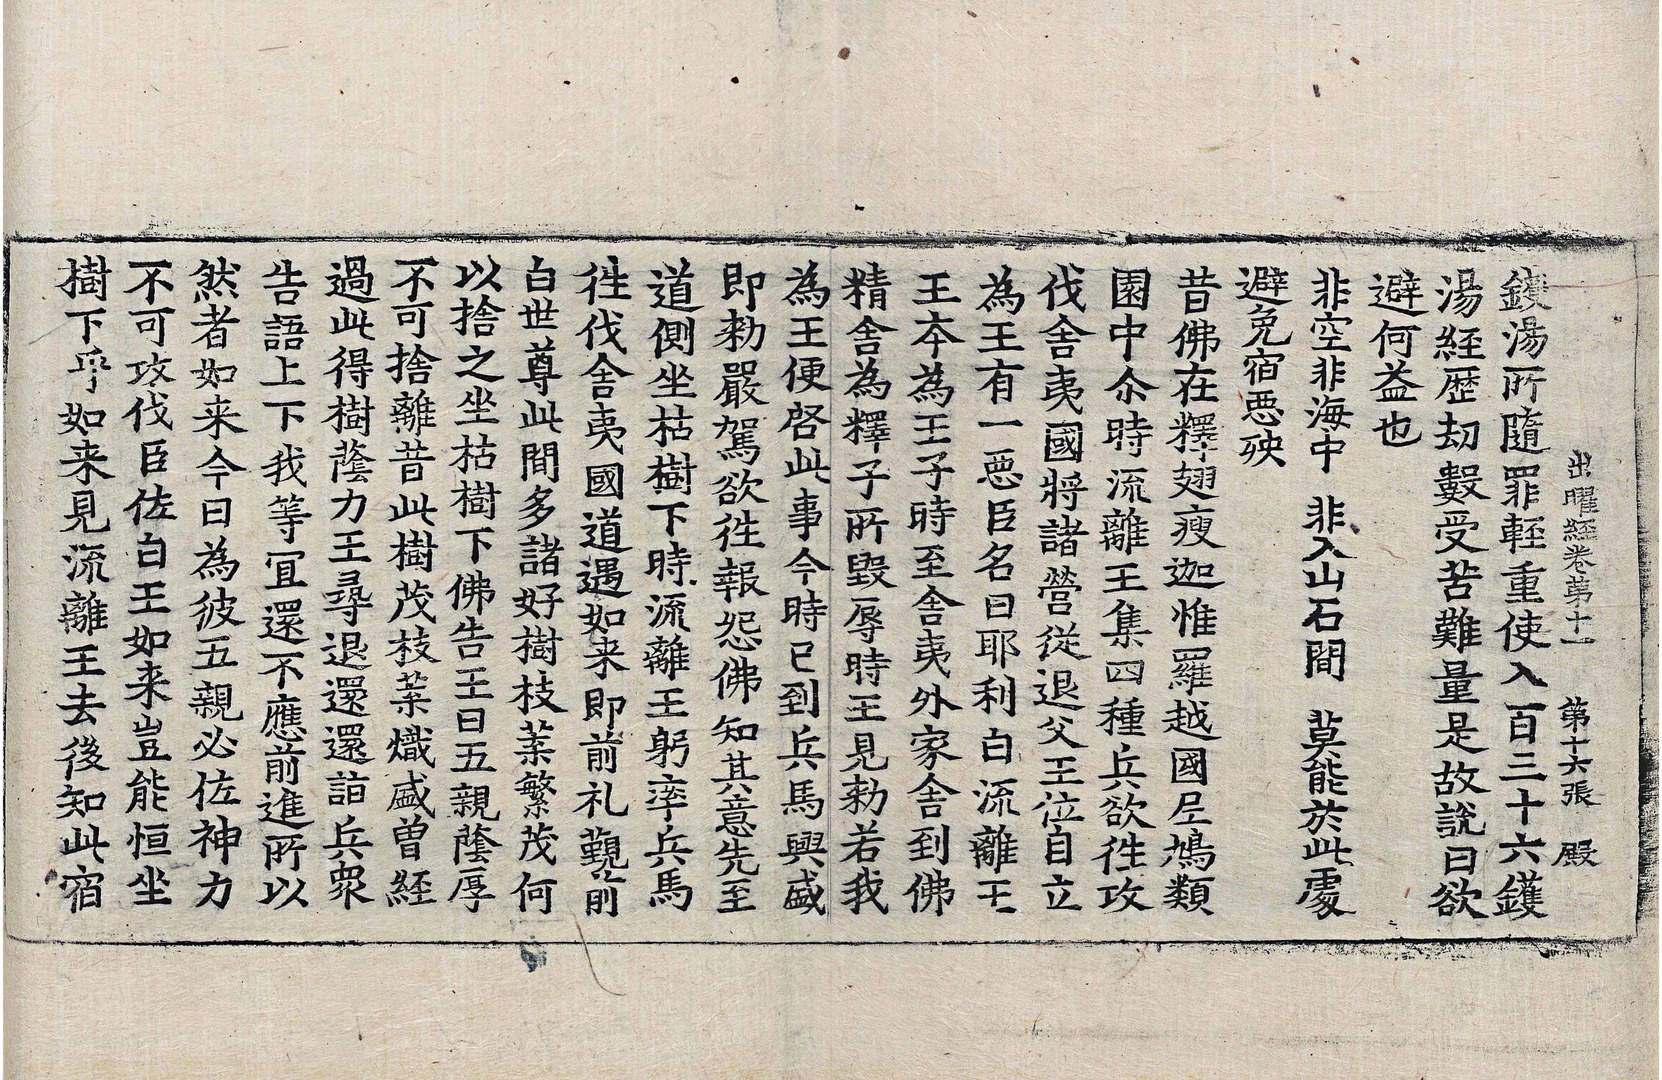 出曜經卷第十一 第十六張 殿
鑊湯所隨罪輕重使入百三十六鑊
湯經歷劫數受苦難量是故說曰欲
避何益也
非空非海中 非入山石間 莫能於此處
避免宿惡殃
昔佛在釋翅瘦迦惟羅越國尼鳩類
園中尒時流離王集四種兵欲徃攻
伐舍夷國將諸營從退父王位自立
為王有一惡臣名曰耶利白流離王
王夲為王子時至舍夷外家舍到佛
精舍為釋子所毀辱時王見勑若我
為王便啓此事今時已到兵馬興盛
即勑嚴駕欲徃報怨佛知其意先至
道側坐枯樹下時流離王躬率兵馬
徃伐舍夷國道遇如来即前礼覲前
白世尊此間多諸好樹枝葉繁茂何
以捨之坐枯樹下佛告王曰五親蔭厚
不可捨離昔此樹茂枝葉熾盛曾經
過此得樹蔭力王尋退還還詣兵衆
告語上下我等冝還不應前進所以
然者如来今日為彼五親必佐神力
不可攻伐臣佐白王如来豈能恒坐
樹下乎如来見流離王去後知此宿